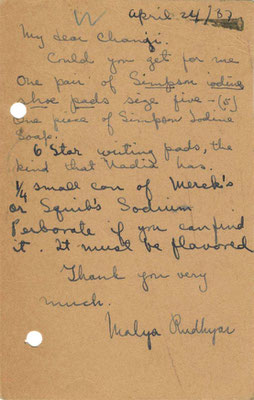 April 24/37
My dear Changi.
Could you get for me
one pair of Simpson iodine
shoe pads size five - (5)
One piece of Simpson Iodine
Soap.
6 Star writing pads, the
kind that Nadia has.
1/4 small can of Merck's
or Squib's Sodium
Perborate if you can find
it. It must be flavored
Thank you very
much.
Malya Rudhyar